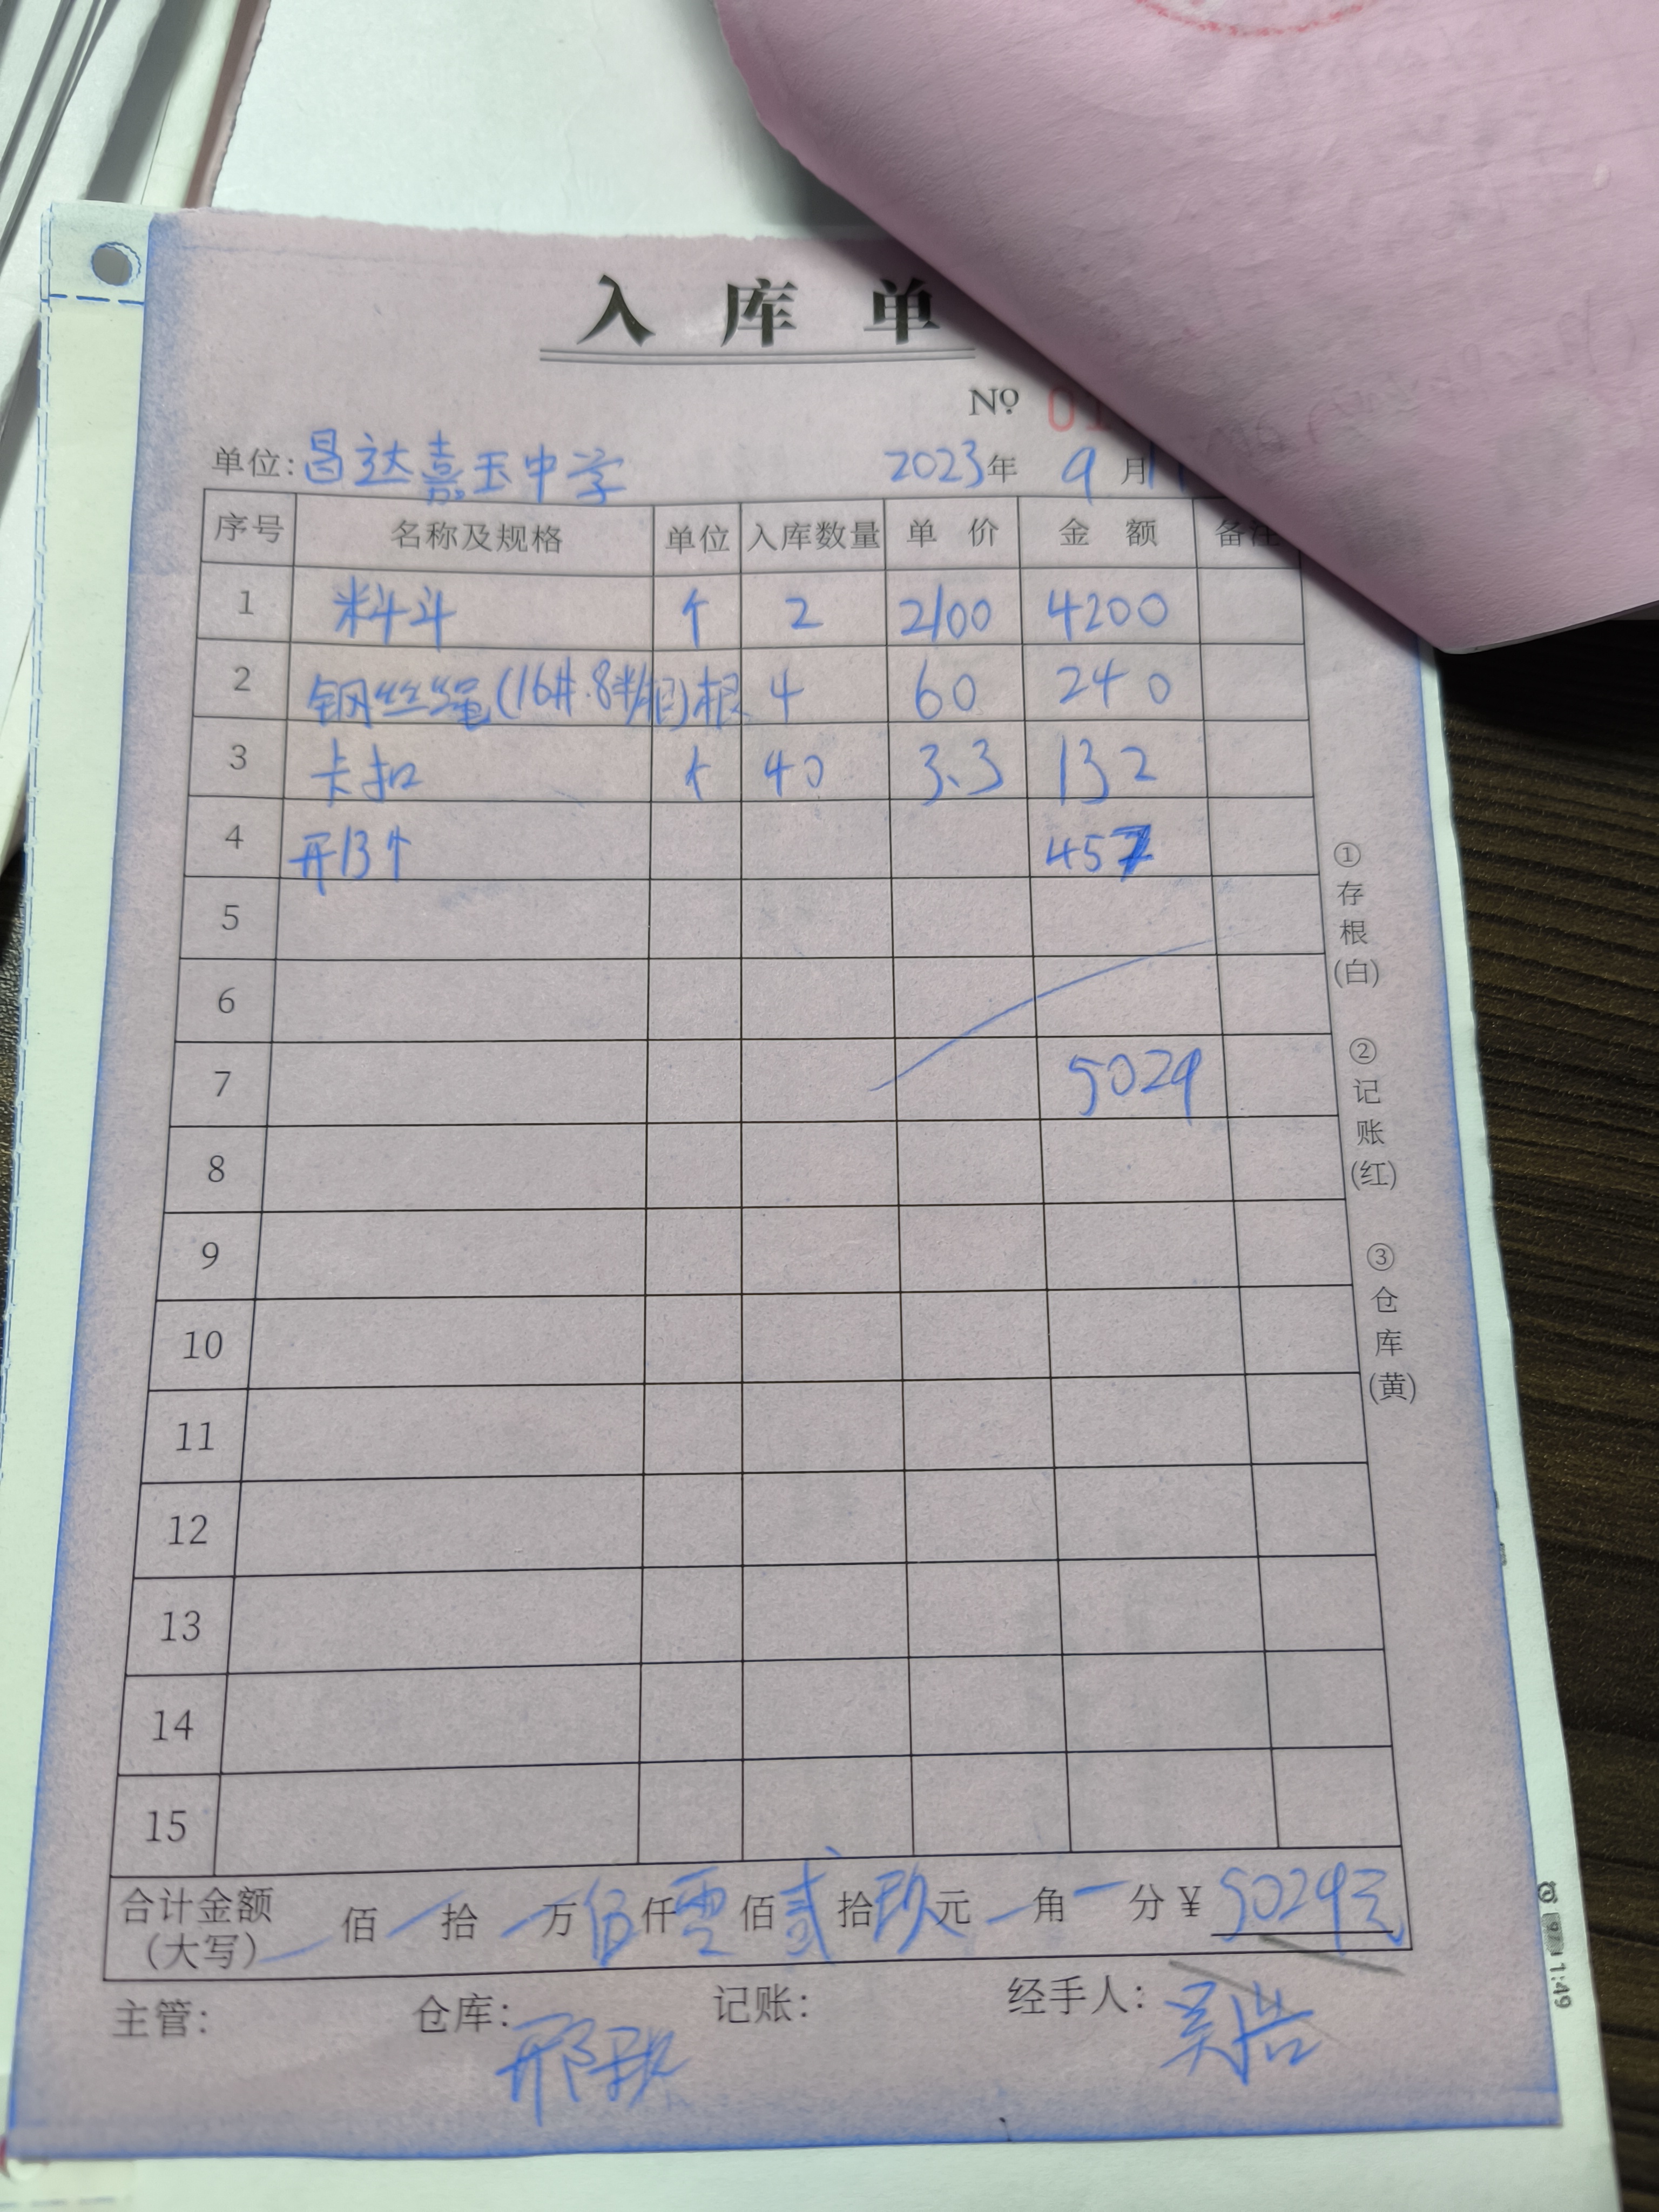 入库单
№ 01
单位: 昌达嘉玉中学 2023年 9月1
序号 名称及规格 单位 入库数量 单价 金额 备注
1 料斗 个 2 2100 4200
2 钢丝绳(16#.8米/根) 根 4 60 240
3 卡扣 个 40 3.3 132
4 开13个 457
5
6
7 5029
8
9
10
11
12
13
14
15
合计金额(大写) 佰 拾 万 伍仟 零佰 贰拾 玖元 角 分 ¥ 5029元
主管: 仓库: 记账: 经手人: 吴
①存根(白)
②记账(红)
③仓库(黄)
1:49